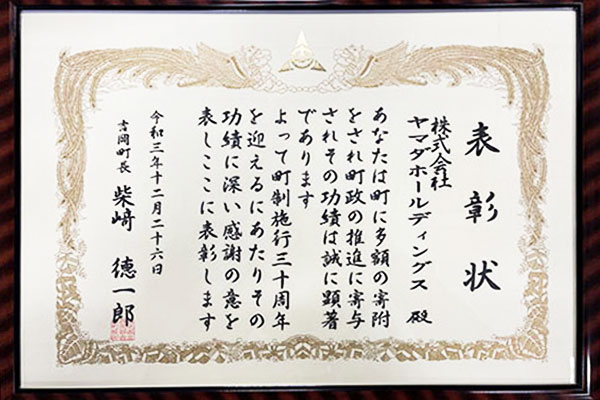 表彰状
株式会社
ヤマダホールディングス 殿
あなたは町に多額の寄附
をされ町政の推進に寄与
されその功績は誠に顕著
であります
よって町制施行三十周年
を迎えるにあたりその
功績に深い感謝の意を
表しここに表彰します
令和三年十二月二十六日
吉岡町長 柴﨑 徳一郎